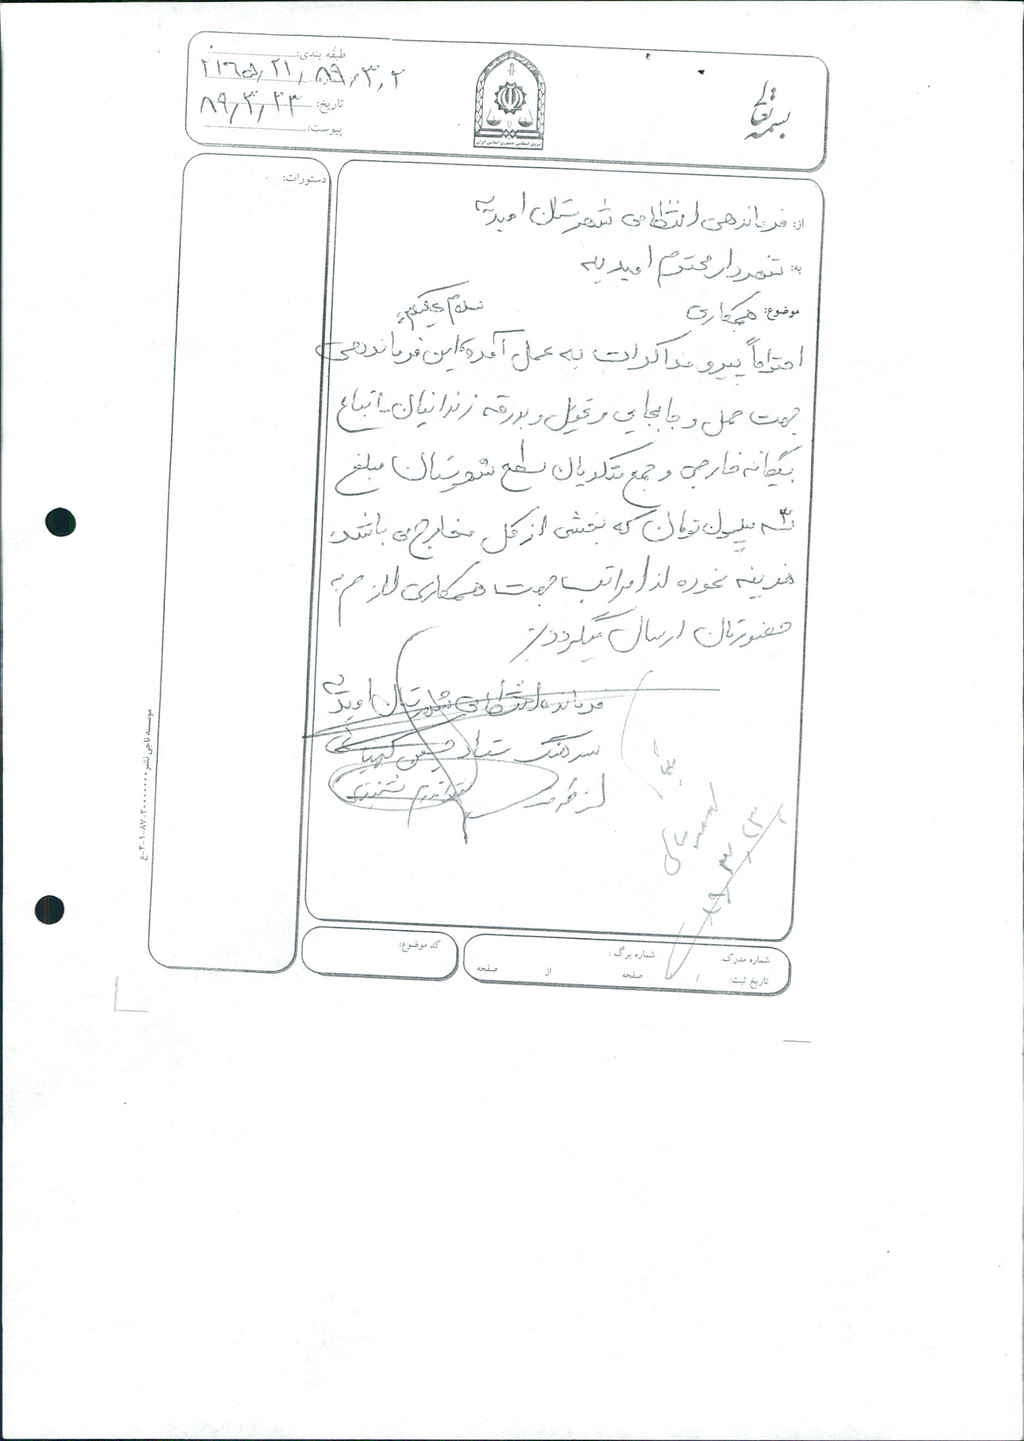 بسمه تعالی
طبقه بندی:
۲۱۶۵/۲۱/۸۹/۳/۲
تاریخ: ۸۹/۳/۲۳
پیوست:
دستورات:
از: فرماندهی انتظامی شهرستان امیدیه
به: شهردار محترم امیدیه
موضوع: همکاری
سلام علیکم
احتراماً پیرو مذاکرات به عمل آمده این فرماندهی
جهت حمل و جابجایی و تحویل و بدرقه زندانیان اتباع
بیگانه خارجی و جمع متکدیان سطح شهرستان مبلغ
۳ میلیون تومان که بخشی از کل مخارج می باشد
هزینه نموده لذا مراتب جهت همکاری لازم به
حضورتان ارسال میگردد
فرمانده انتظامی شهرستان امیدیه
سرهنگ ستاد
از طرف
شماره مدرک:
شماره برگ:
تاریخ ثبت: /
صفحه از صفحه
کد موضوع: